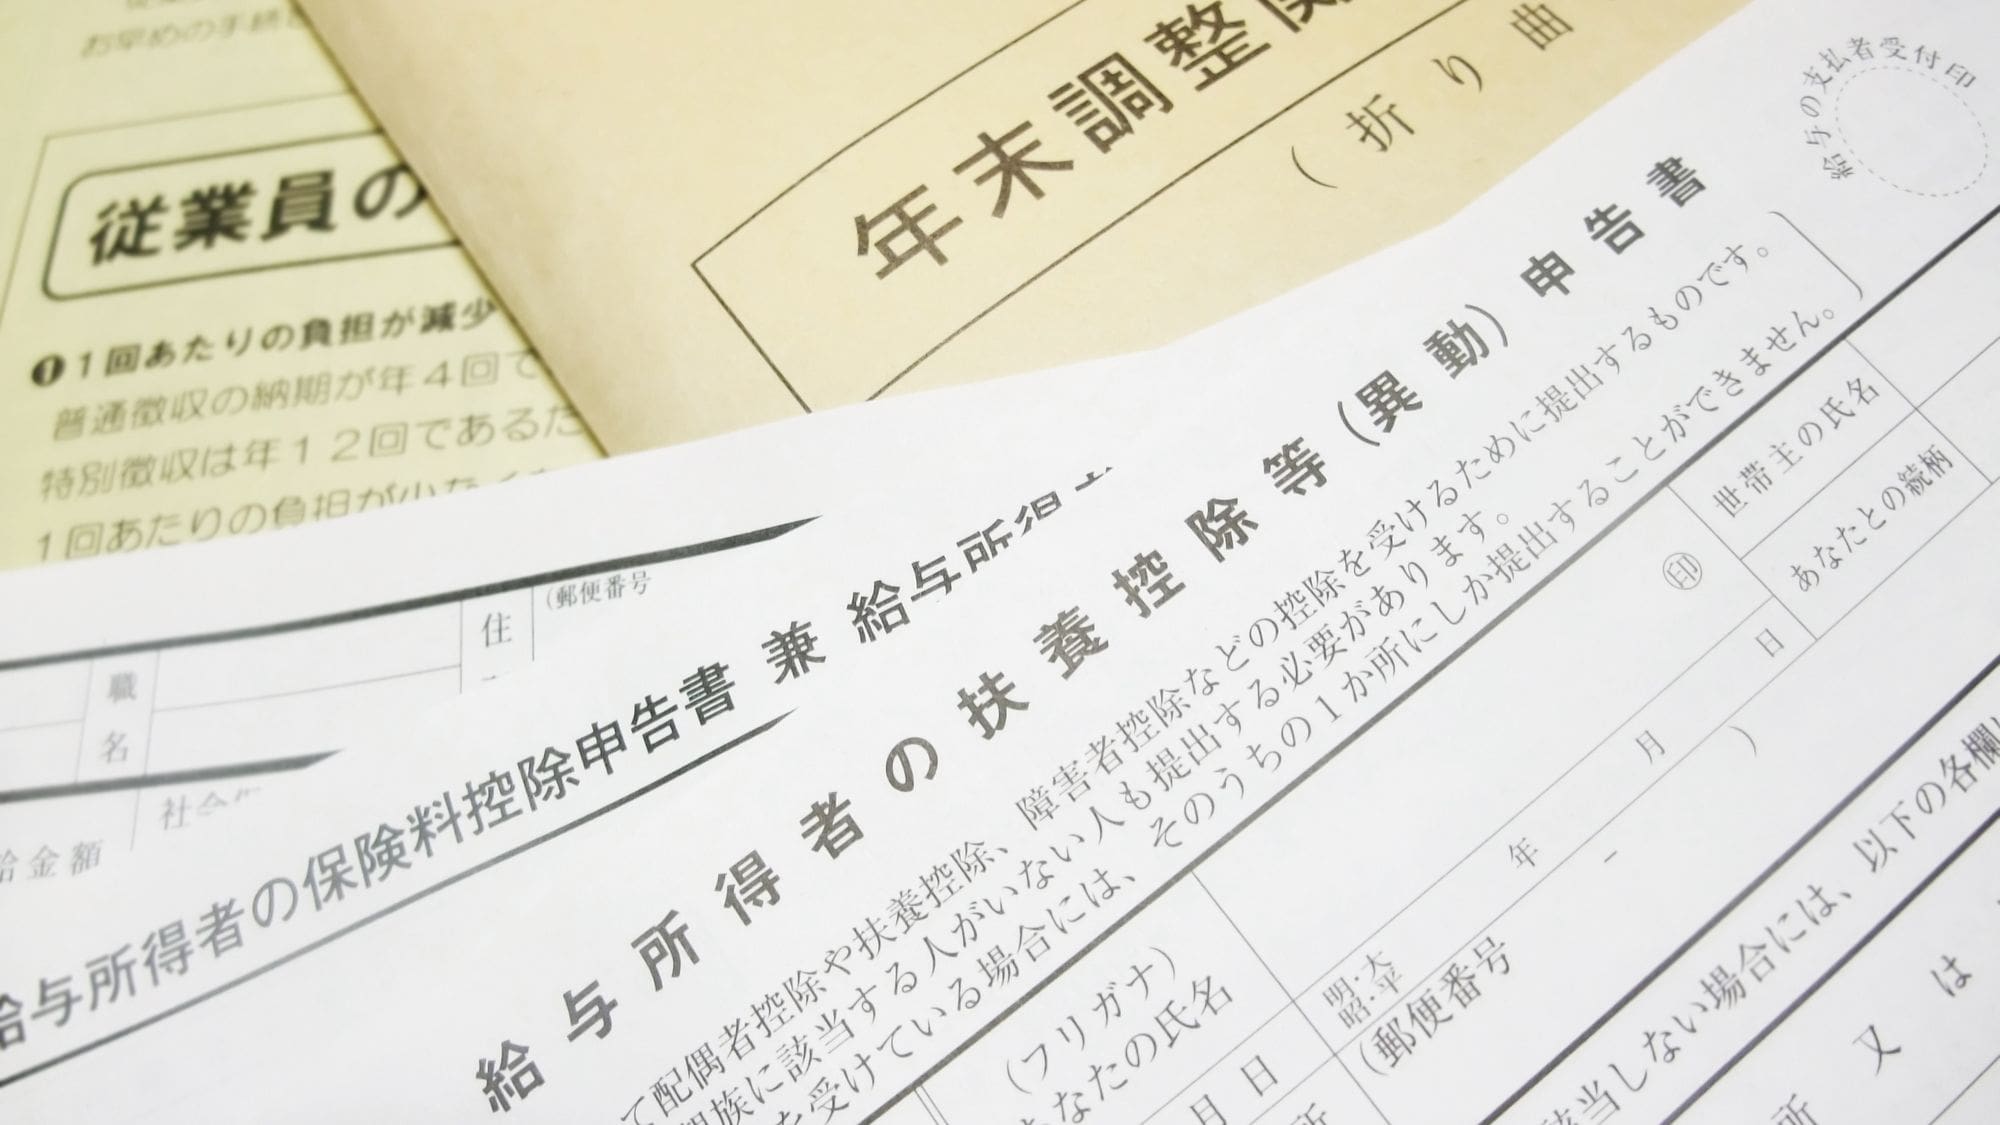 お早めの手続
従業員の
❶1回あたりの負担が減少
普通徴収の納期が年4回で
特別徴収は年12回であるた
1回あたりの負担が少なく
年末調整関
(折り曲
給与の支払者受付印
(郵便番号
住
職名
社会保
給金額
給与所得者の保険料控除申告書 兼 給与所得
給与所得者の扶養控除等(異動)申告書
て配偶者控除や扶養控除、障害者控除などの控除を受けるために提出するものです。
親族に該当する人がいない人も提出する必要があります。
を受けている場合には、そのうちの1か所にしか提出することができません。
(フリガナ)
あなたの氏名
㊞
世帯主の氏名
あなたとの続柄
明・大
昭・平
年 月 日
(郵便番号 - )
月 日
所
該当しない場合には、以下の各欄に
所 又 は